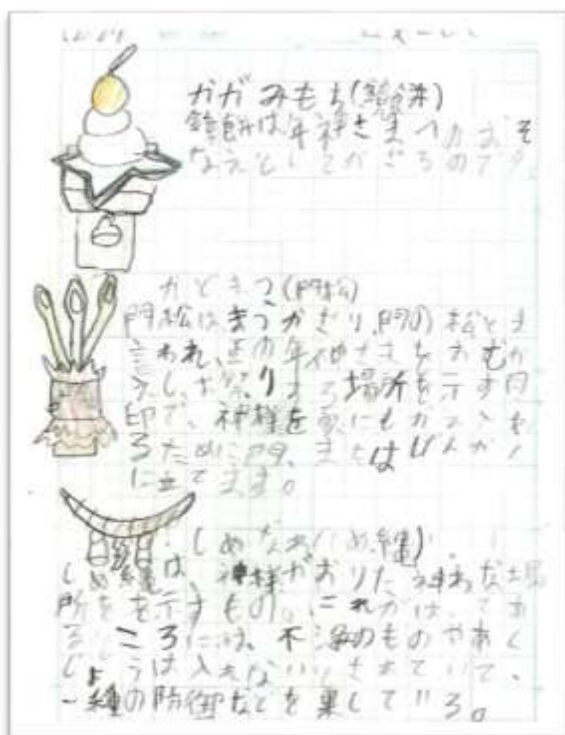 12.27
かがみもち(鏡餅)
鏡餅は年神さまへのおそ
なえとしてかざるのです。
かどまつ(門松)
門松はまつかざり、門の松とも
言われ、正の年神さまをおむか
えし、お祭りする場所を示す目
印で、神様を家にむかえ入れ
るために門、またはげんかん
に立てます。
しめなわ(しめ縄)
しめ縄は、神様がおりた神な場
所をを示すもの。これがはってあ
るところには、不浄のものやあく
じょうは入れないとされていて、
一種の防御などを果している。